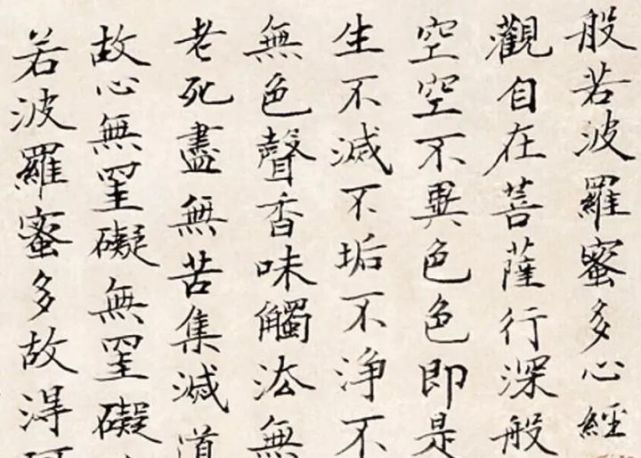 般若波羅蜜多心經
觀自在菩薩行深般
空空不異色色即是
生不滅不垢不淨不
無色聲香味觸法無
老死盡無苦集滅道
故心無罣礙無罣礙
若波羅蜜多故得阿